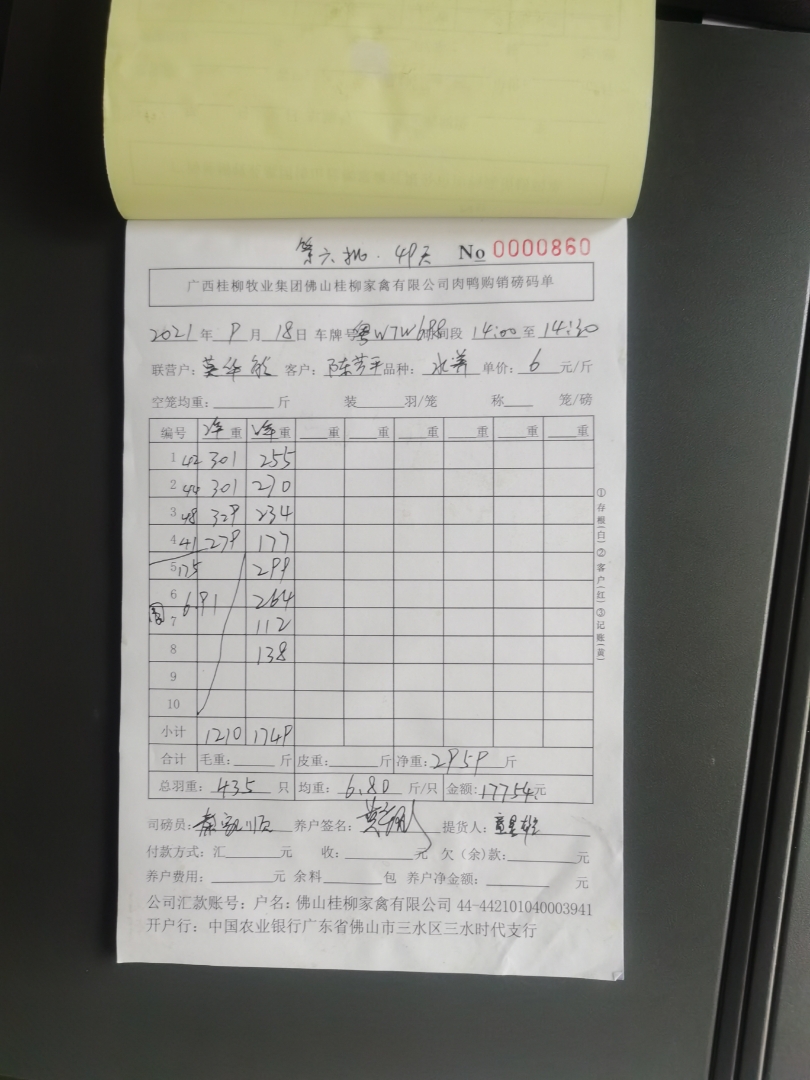 第六批.49天 No 0000860
广西桂柳牧业集团佛山桂柳家禽有限公司肉鸭购销磅码单
2021年9月18日 车牌号粤W7W688时间段 14:00至14:30
联营户: 莫华 客户: 陈芳平品种: 水养 单价: 6 元/斤
空笼均重: 斤 装 羽/笼 称 笼/磅
编号 净重 净重 重 重 重 重 重 重
1 42 301 255
2 44 301 270
3 48 329 234
4 41 279 177
5 175 299
6 6.91 264
7 112
8 138
9
10
小计 1210 1749
合计 毛重: 斤 皮重: 斤 净重: 2959 斤
总羽重: 435 只 均重: 6.80 斤/只 金额: 17754元
司磅员: 养户签名: 提货人:
付款方式: 汇 元 收: 元 欠(余)款: 元
养户费用: 元 余料 包 养户净金额: 元
公司汇款账号: 户名: 佛山桂柳家禽有限公司 44-442101040003941
开户行: 中国农业银行广东省佛山市三水区三水时代支行
①存根(白)②客户(红)③记账(黄)